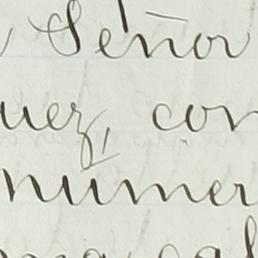 Señor
uez, con
numer